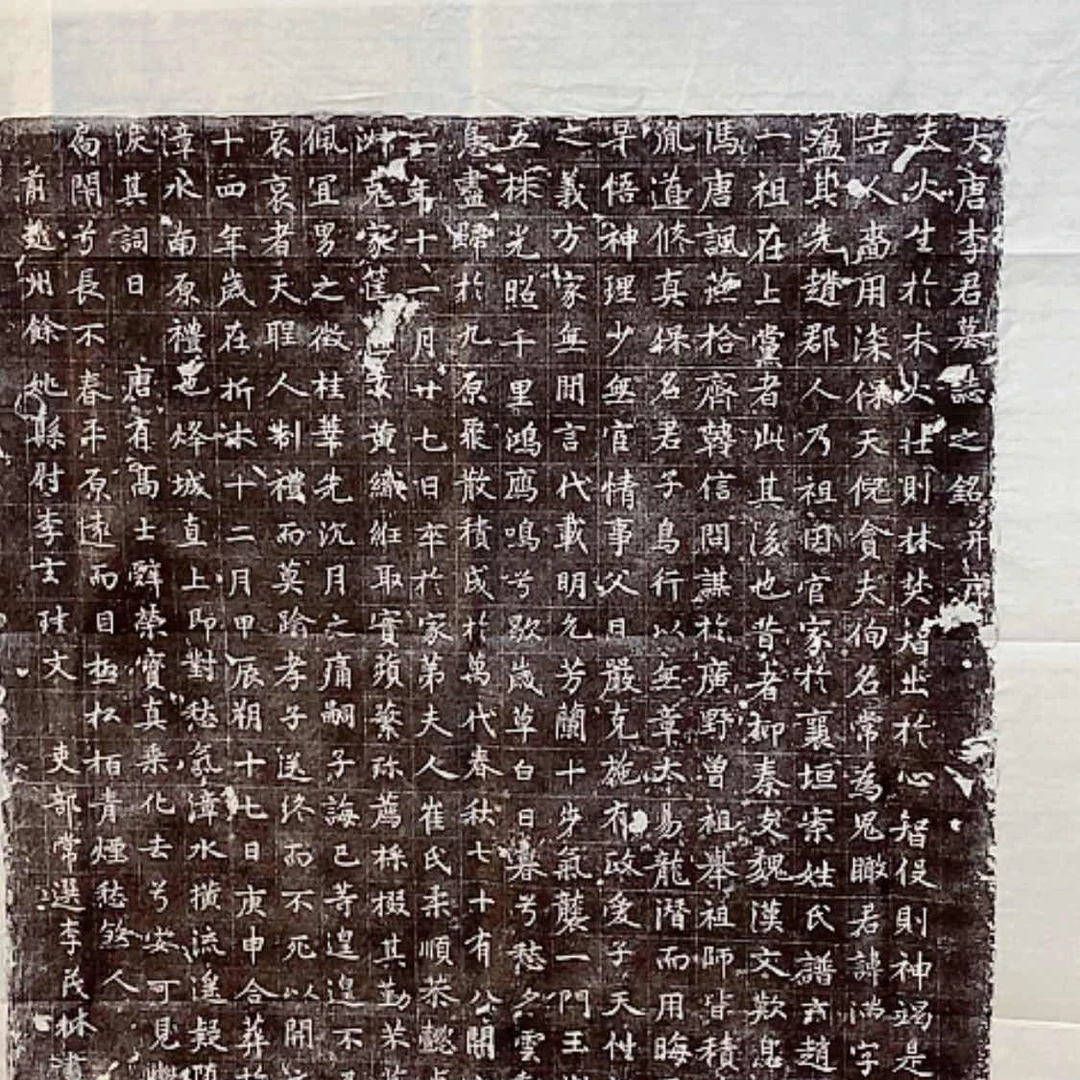 大唐李君墓誌之銘并序
夫火生於木火壮則林焚智出於心智役則神竭是
吉人啬用深保天倪貪夫徇名常為鬼瞰君諱满字
盈其先趙郡人乃祖因官家於襄垣崇姓氏譜云趙
一祖在上黨者此其後也昔者柳秦文魏漢文歎息
馮唐諷燕拾齊韓信問謀於廣野曽祖舉祖師皆積
胤道修真保名君子鳥行以無章太易龍潜而用晦
早悟神理少無官情事父日嚴克施有政愛子天性
之義方家無間言代載明允芳蘭十步氣襲一門玉
五株光照千里鴻鴈鳴兮歌歲草白日暮兮愁夕雲
息盡歸於九原聚散積成於萬代春秋七十有八開
二年十二月廿七日卒於家弟夫人崔氏柔順恭懿
此克家筐 玄黄織紝取實蘋蘩弥薦採掇其勤芣
佩宜男之徵桂華先沉月之痛嗣子誨己等遑遑不
哀哀者天聖人制禮而莫踰孝子送終而不死以開
十四年歲在折木十二月甲辰朔十七日庚申合葬於
漳水南原禮也烽城直上即對愁氣漳水橫流遥疑
淚其詞曰 唐有高士辭榮寳真乘化去兮安可見
扃閇兮長不春平原遠而目極松栢青煙愁煞人
前越州餘姚縣尉李士珪文 吏部常選李茂林書